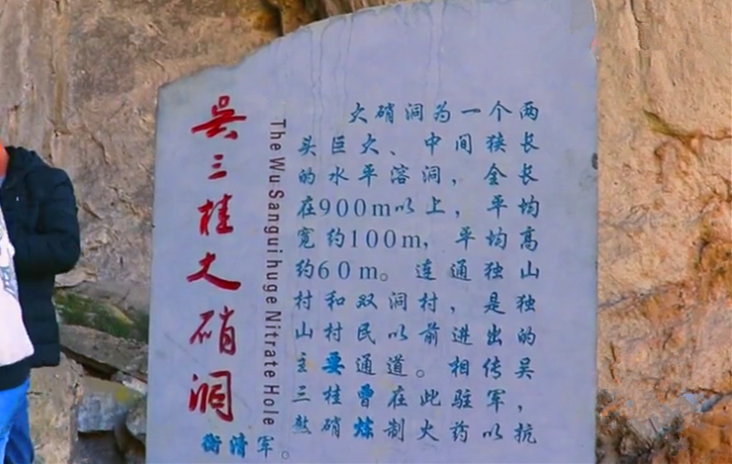 吴三桂大硝洞
The Wu Sanguihuge Nitrate Hole
大硝洞为一个两
头巨大、中间狭长
的水平溶洞，全长
在900m以上，平均
宽约100m，平均高
约60m。连通独山
村和双洞村，是独
山村民以前进出的
主要通道。相传吴
三桂曾在此驻军，
熬硝炼制火药以抗
衡清军。